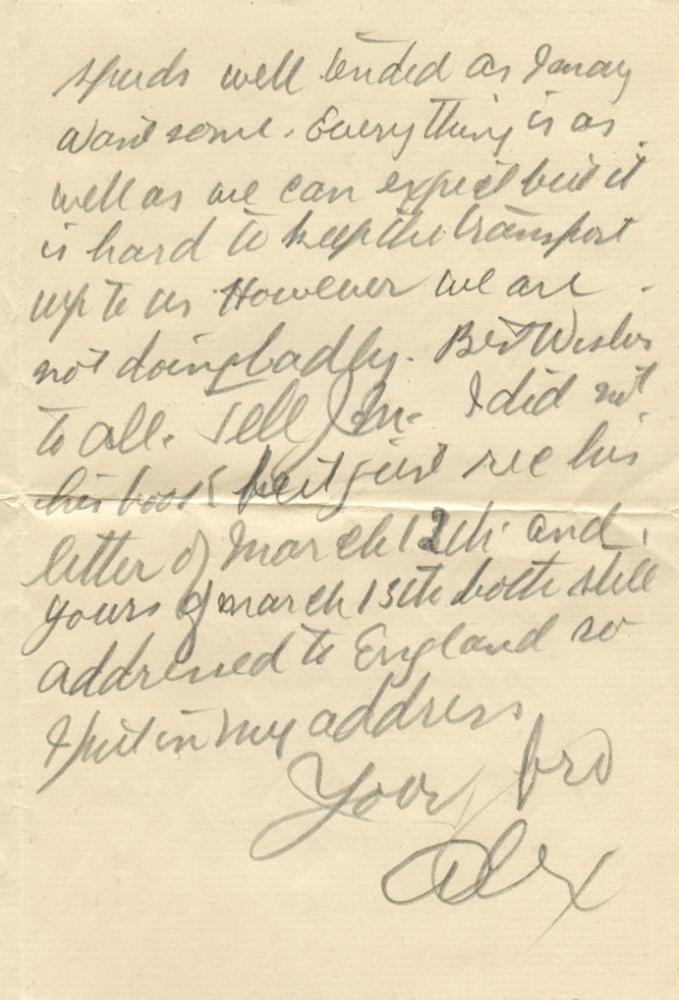 spuds well tended as I may
want some. Everything is as
well as we can expect but it
is hard to keep the transport
up to us However we are
not doing badly. Best Wishes
to all. Tell Jim. I did not
his book but just rec his
letter of March 12th and
yours of March 15th both still
addressed to England so
I put in my address
Your bro
Alex